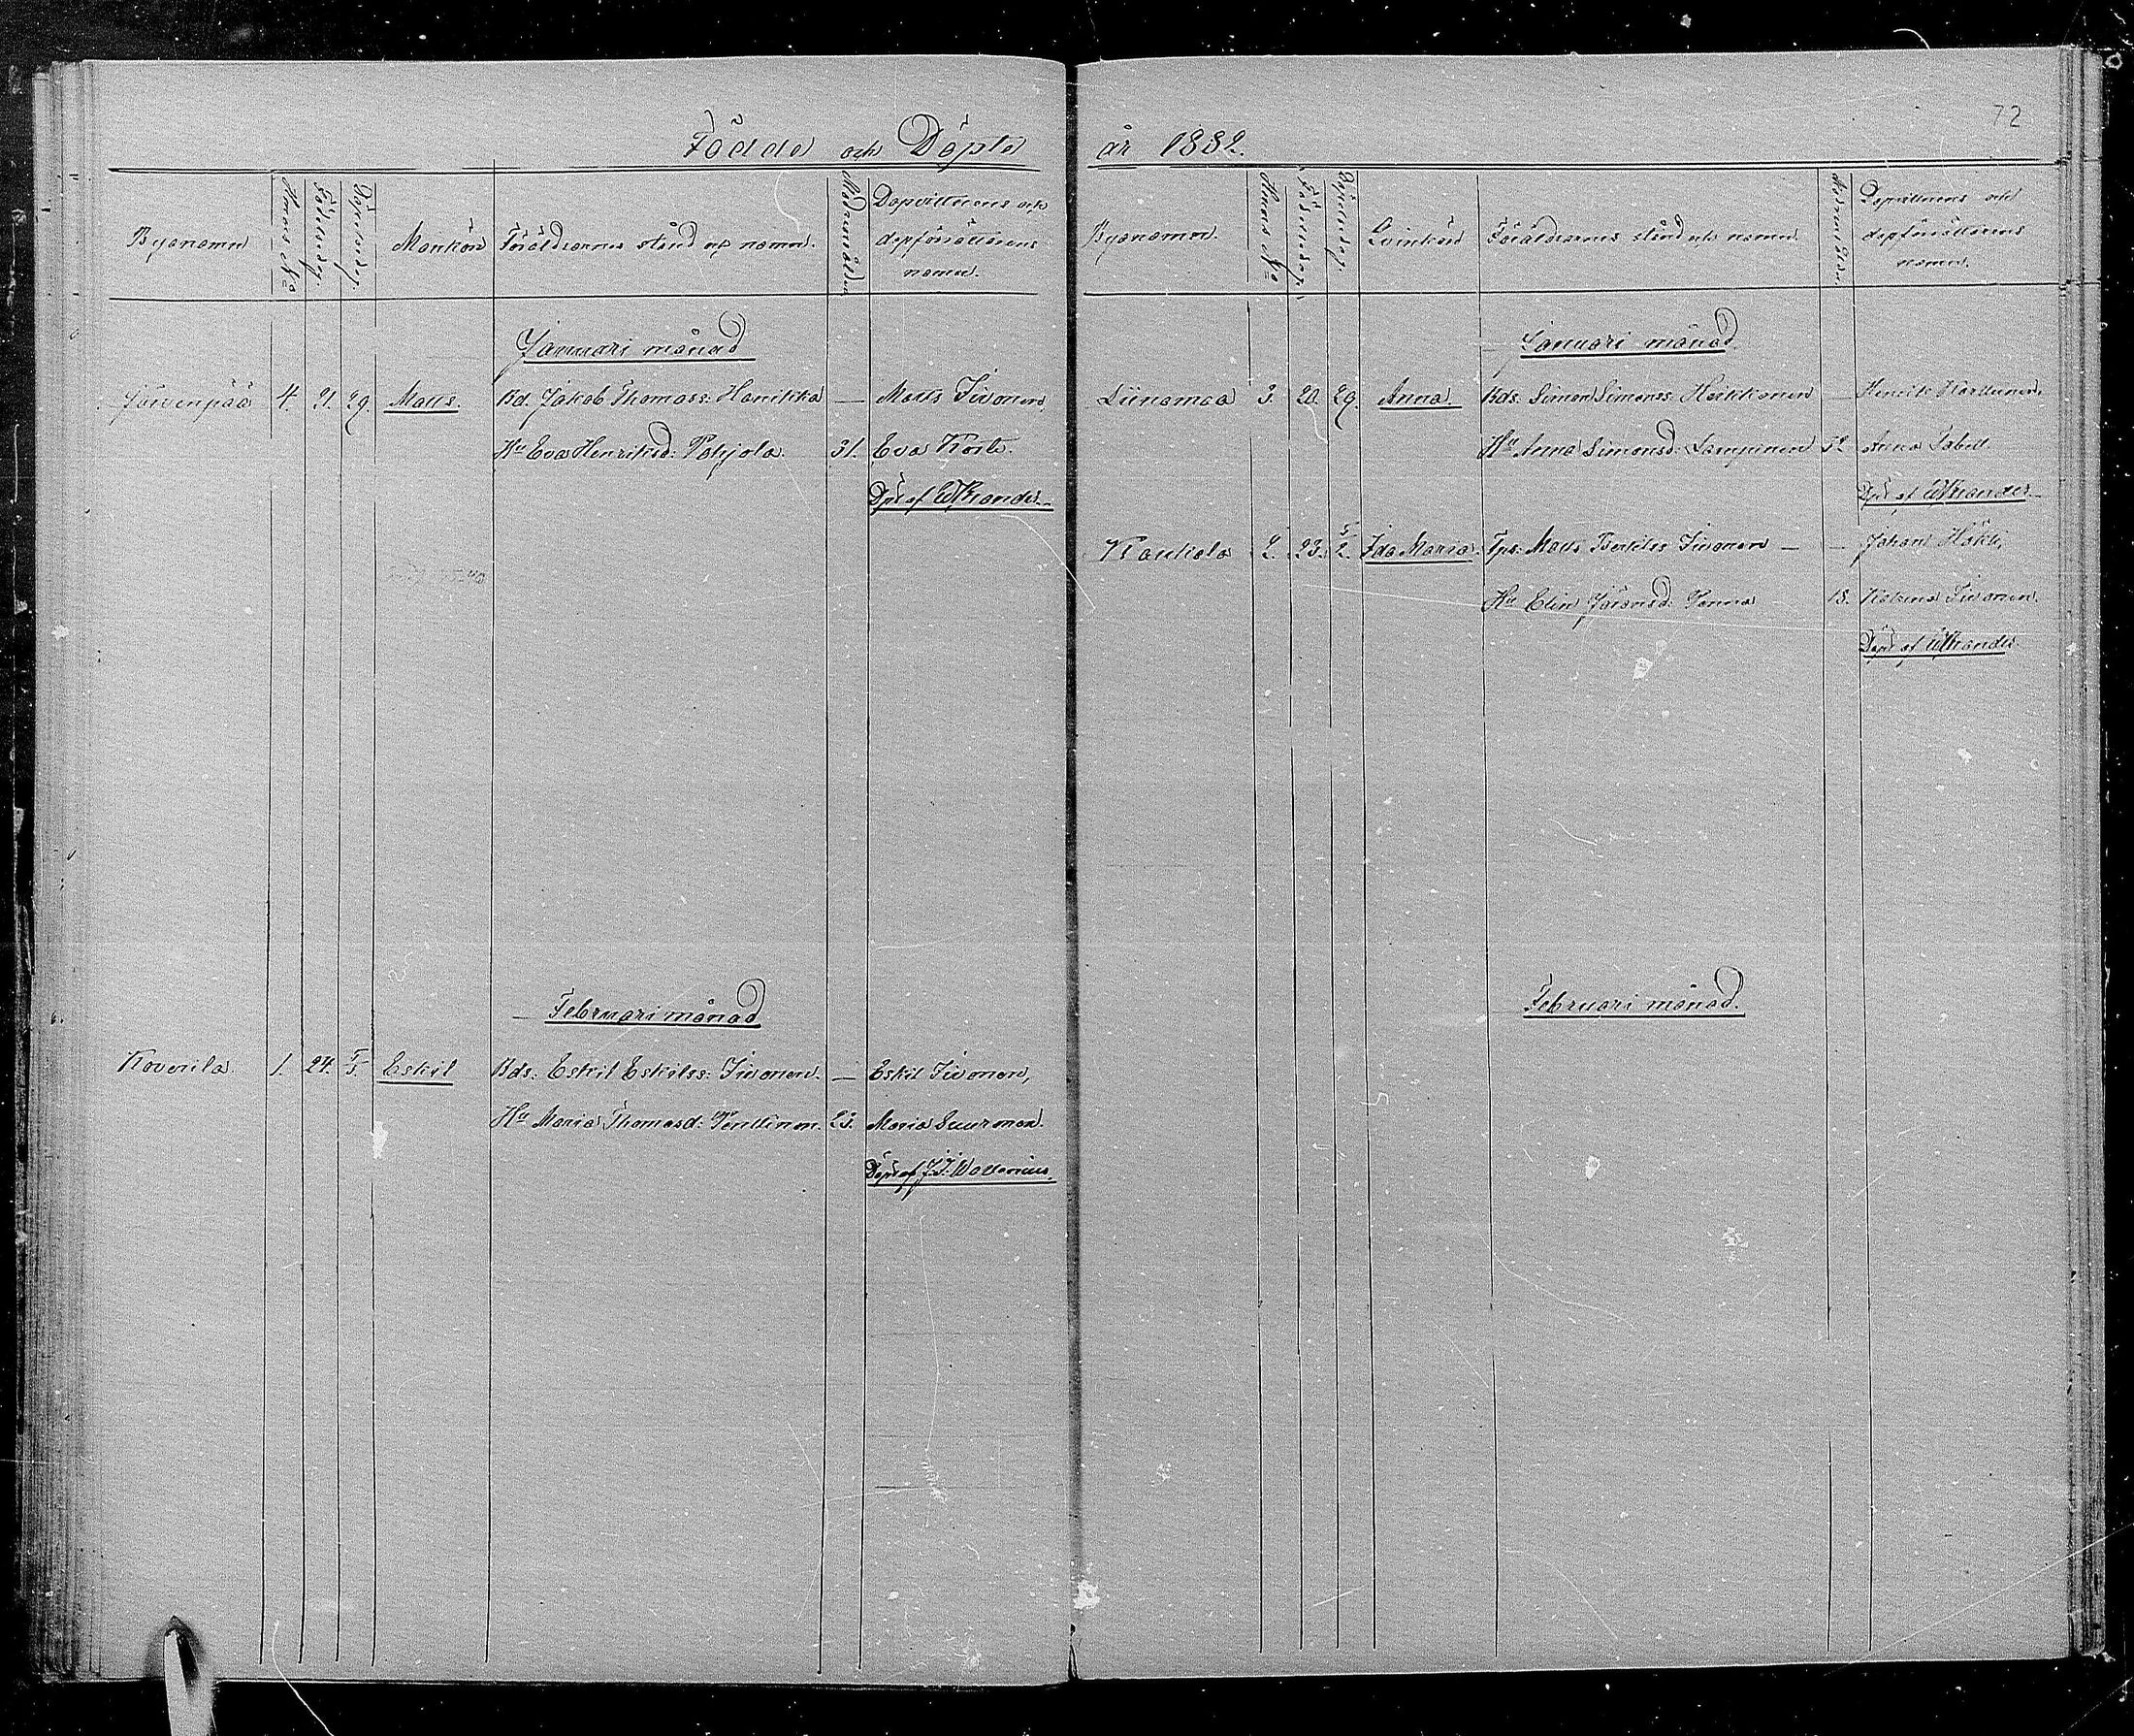 72
Födde och Döpte år 1882.
Byanamn Hmans No Födelsedag. Döpelsedag. Mankön Föräldrarnes stånd och namn. Modrens ålder Dopvittnens och dopförrättarens namn.
Januari månad
Järvenpää 4. 21. 29. Matts. Bd. Jakob Thomass: Hanikka — Matts Sivonen
Hu Eva Henriksd: Pohjola. 31. Eva Korte.
Döpt af
Februari månad
Koverila 1. 24. Eskil Bds: Eskil Eskilss: Sivonen. — Eskil Sivonen,
Hu Maria Thomasd: Penttinen. 23. Maria Suurman.
Döpt af J.J. Wallenius.
Byanamn. Hmans No Födelsedag. Döpelsedag. Qvinkön Föräldrarnes stånd och namn. Modrens ålder. Dopvittnens och dopförrättarens namn.
Januari månad.
Liinamaa 3. 20. 29. Anna Bds: Simon Simonss: Heikkonen — Henrik
Hu Anna Simonsd: Lampinen Anna
Döpt af
Kaukola 2. 23. Ida Maria. Tps: Matts Sivonen — — Johan
Hu Elin Göransd: 18. Sivonen.
Döpt af
Februari månad.